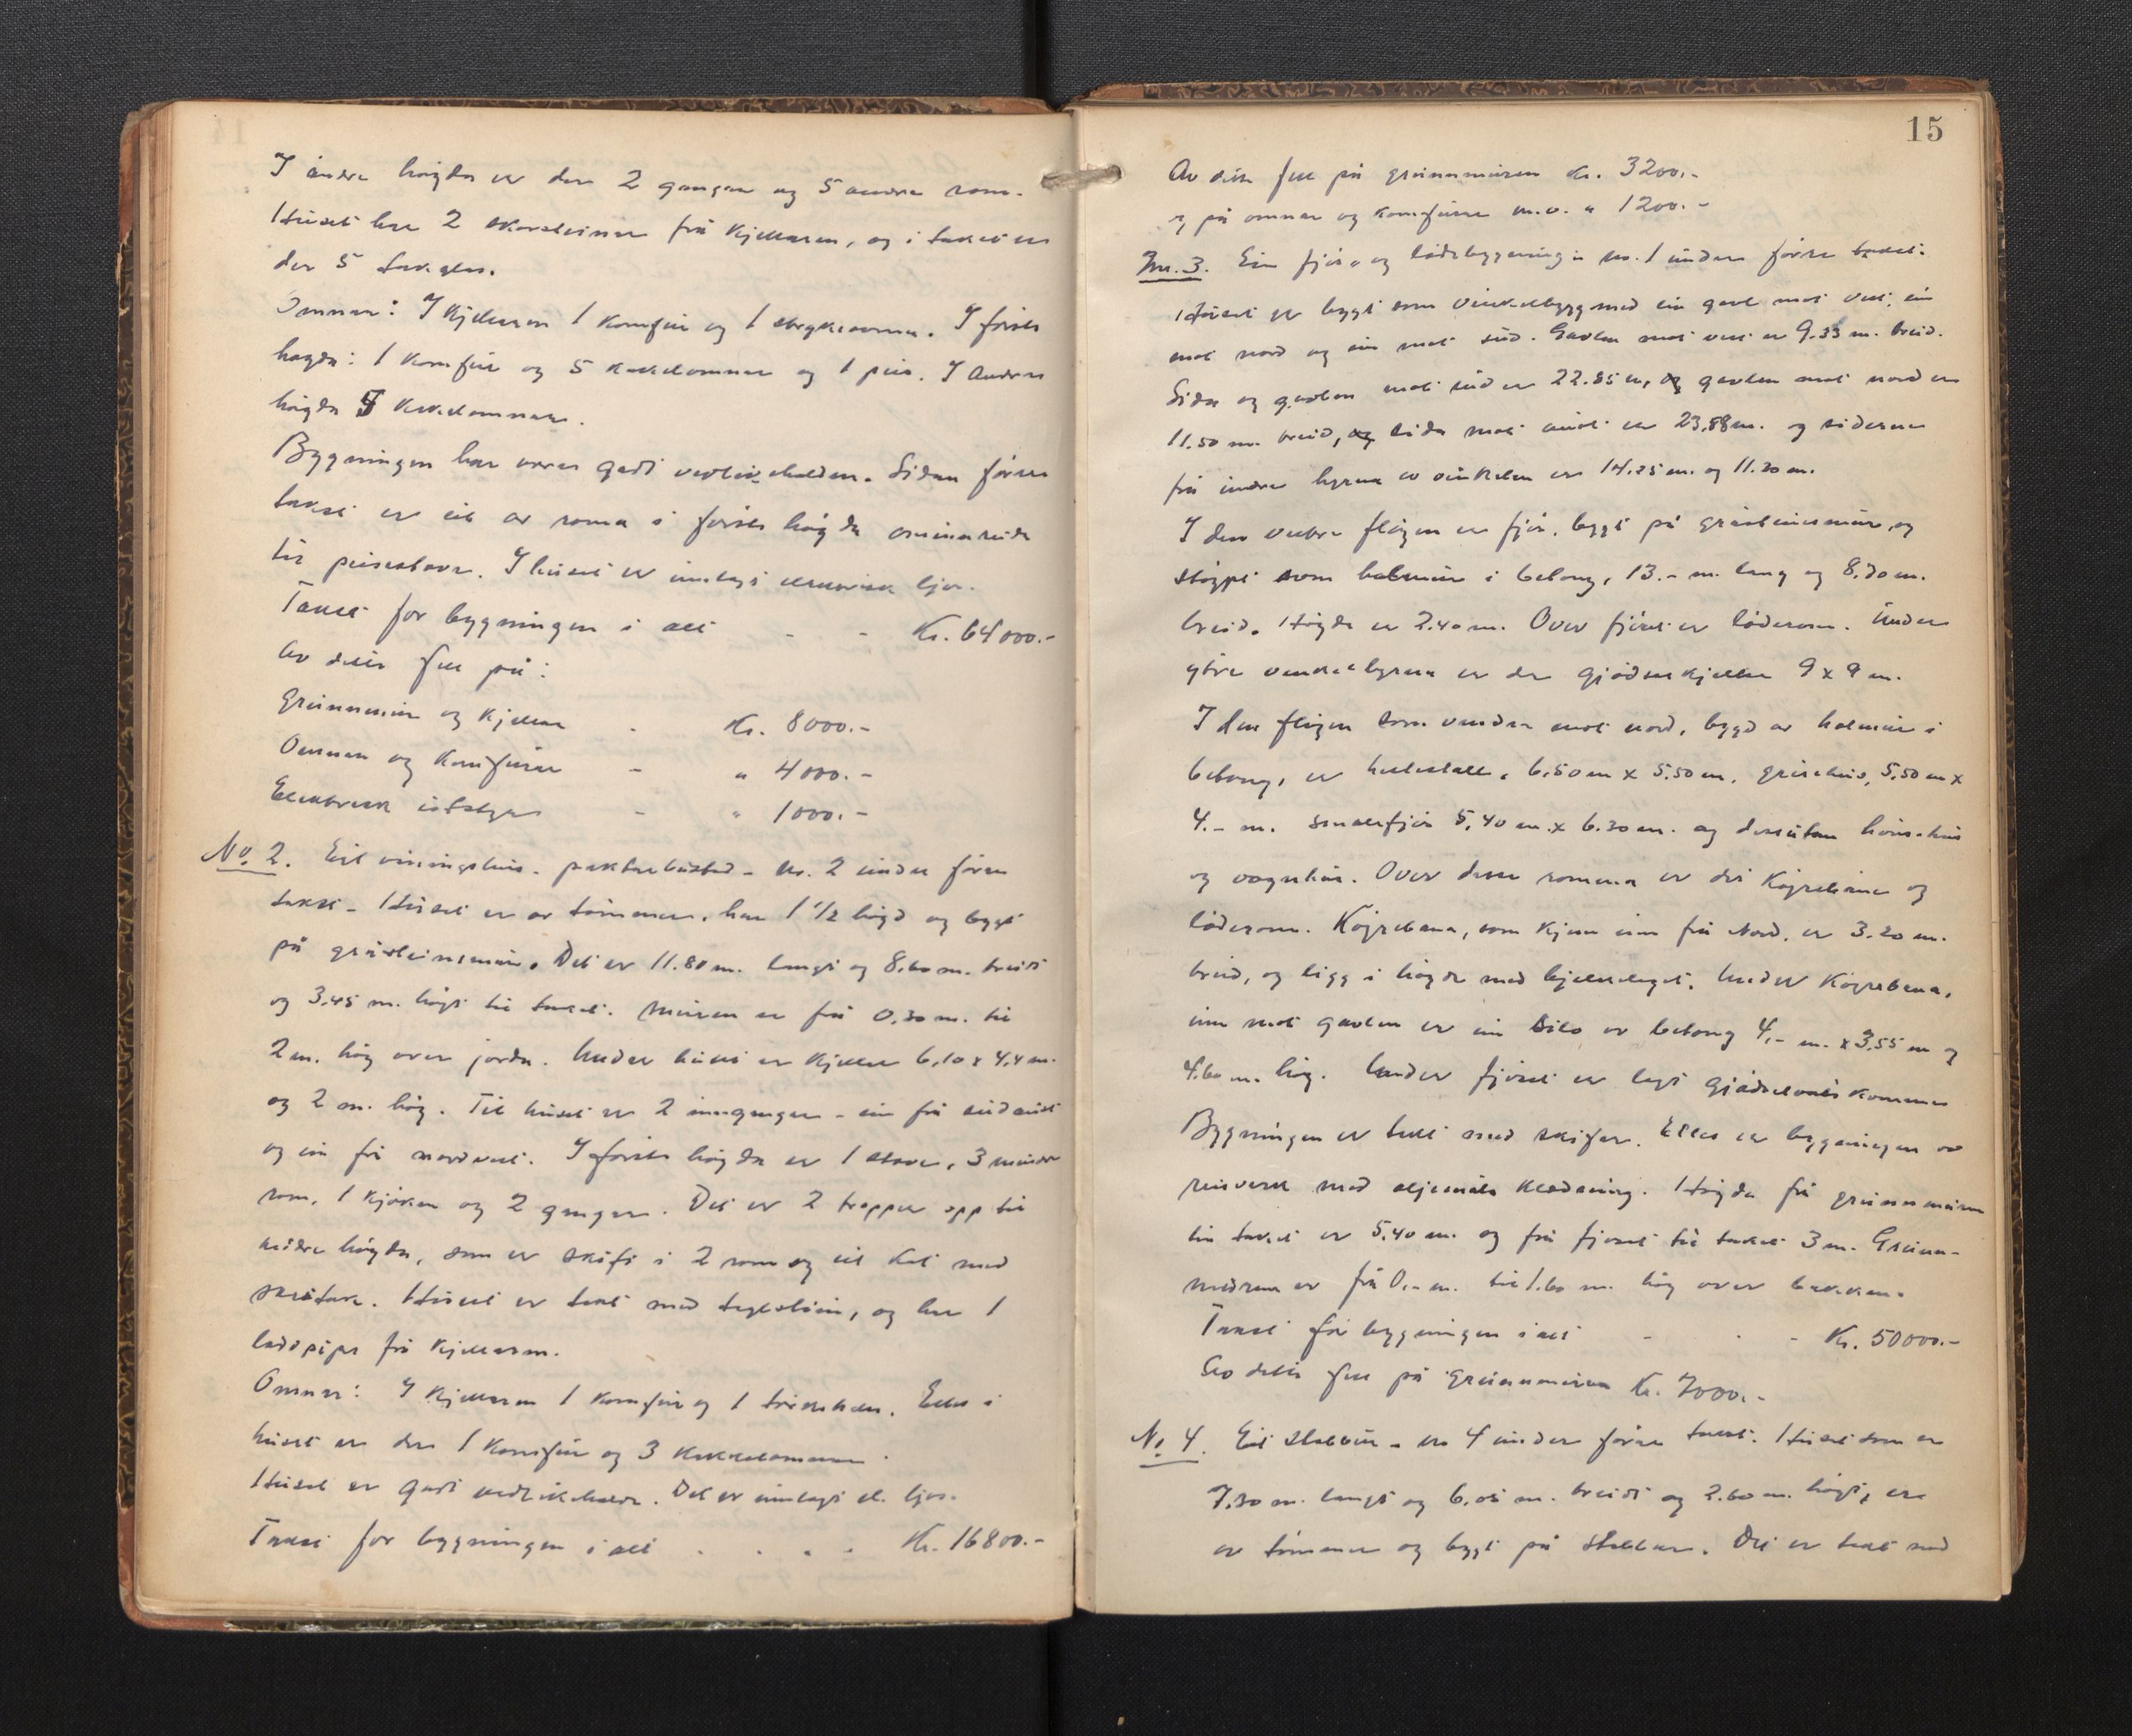 I andre høgda er der 2 gangar og 5 andre rom.
Huset har 2 skorsteinar frå kjellaren, og i taket er
der 5 takglas.
Omnar: I kjellaren 1 komfür og 1 strykeomn. I første
høgda: 1 komfür og 5 kakelomnar og 1 peis. I andre
høgda 5 kakelomnar.
Bygningen har vore godt vedlikehalden. Sidan førre
takst er eit av roma i første høgda ominnreidd
til peisestova. I huset er innlagt elektrisk ljos.
Takst for bygningen i alt - - Kr. 64000.-
Av dette fell på:
Grunnmur og kjellar - Kr. 8000.-
Omnar og komfürar - " 4000.-
Elektrisk utstyr - " 1000.-
No. 2. Eit våningshus - paktarbustad - nr. 2 under førre
takst - Huset er av tømmer, har 1 1/2 høgd og bygt
på gråsteinsmur. Det er 11.80 m. langt og 8,60 m. breidt
og 3,45 m. høgt til taket. Muren er frå 0,30 m. til
2 m. høg over jorda. Under huset er kjellar 6,10 x 4,4 m.
og 2 m. høg. Til huset er 2 inngangar - ein frå sudaust
og ein frå nordvest. I første høgda er 1 stove, 3 mindre
rom, 1 kjøken og 2 gangar. Det er 2 trapper opp til
andre høgda, som er skift i 2 rom og eit kot med
skråtak. Huset er tekt med teglstein, og har 1
laddpipe frå kjellaren.
Omnar: I kjellaren 1 komfür og 1 Elles i
huset er der 1 komfür og 3 kakkelomnar.
Huset er godt vedlikehalde. Det er innlagt el. ljos.
Takst for bygningen i alt . . . . Kr. 16800.-
15
Av dette fell på grunnmuren Kr. 3200.-
og på omnar og komfürar m.v. " 1200.-
Nr. 3. Ein fjos- og lødebygning - nr. 1 under førre takst.
Huset er bygt som vinkelbygg med ein gavl mot vest, ein
mot nord og ein mot sud. Gavlen mot vest er 9.33 m. breid.
Sida og gavlen mot sud er 22.85 m, og gavlen mot nord er
11.50 m. breid, og sida mot aust er 23,88 m. og sidene
frå indre hyrna av vinkelen er 14.25 m. og 11.20 m.
I den vestre fløyen er fjos, bygt på gråsteinsmur, og
støypt som holmur i betong, 13.- m. lang og 8,70 m.
breid. Høgda er 2.40 m. Over fjoset er løderom. Under
ytre vinkelhyrna er der gjødselkjeller 9 x 9 m.
I den fløyen som vender mot nord, bygd av holmur i
betong, er hestestall, 6,50 m x 5,50 m, grisehus, 5,50 m x
4.- m. småfefjos 5,40 m. x 6.30 m. og dessutan hønsehus
og vognhus. Over desse romma er det køyrebane og
løderom. Køyrebana, som kjem inn frå Nord, er 3.20 m.
breid, og ligg i høgde med bjelkelaget. Under køyrebana,
inn mot gavlen er ein silo av betong 4,- m. x 3,55 m og
4.60 m. høg. Under fjoset er lagt gjødselvatskommer
Bygningen er tekt med skifer. Elles er bygningen av
reisverk med oljemåla kledning. Høgda frå grunnmuren
til taket er 5,40 m. og frå fjoset til taket 3 m. Grunn-
muren er frå 0,- m. til 1.60 m. høg over bakken.
Takst for bygningen i alt - . - Kr. 50000.-
Av dette fell på grunnmuren Kr. 7000.-
No 4. Eit stabbur - nr 4 under førre takst. Huset som er
7,30 m. langt og 6,05 m. breidt og 2.60 m. høgt, er
av tømmer og bygt på stabbar. Det er tekt med